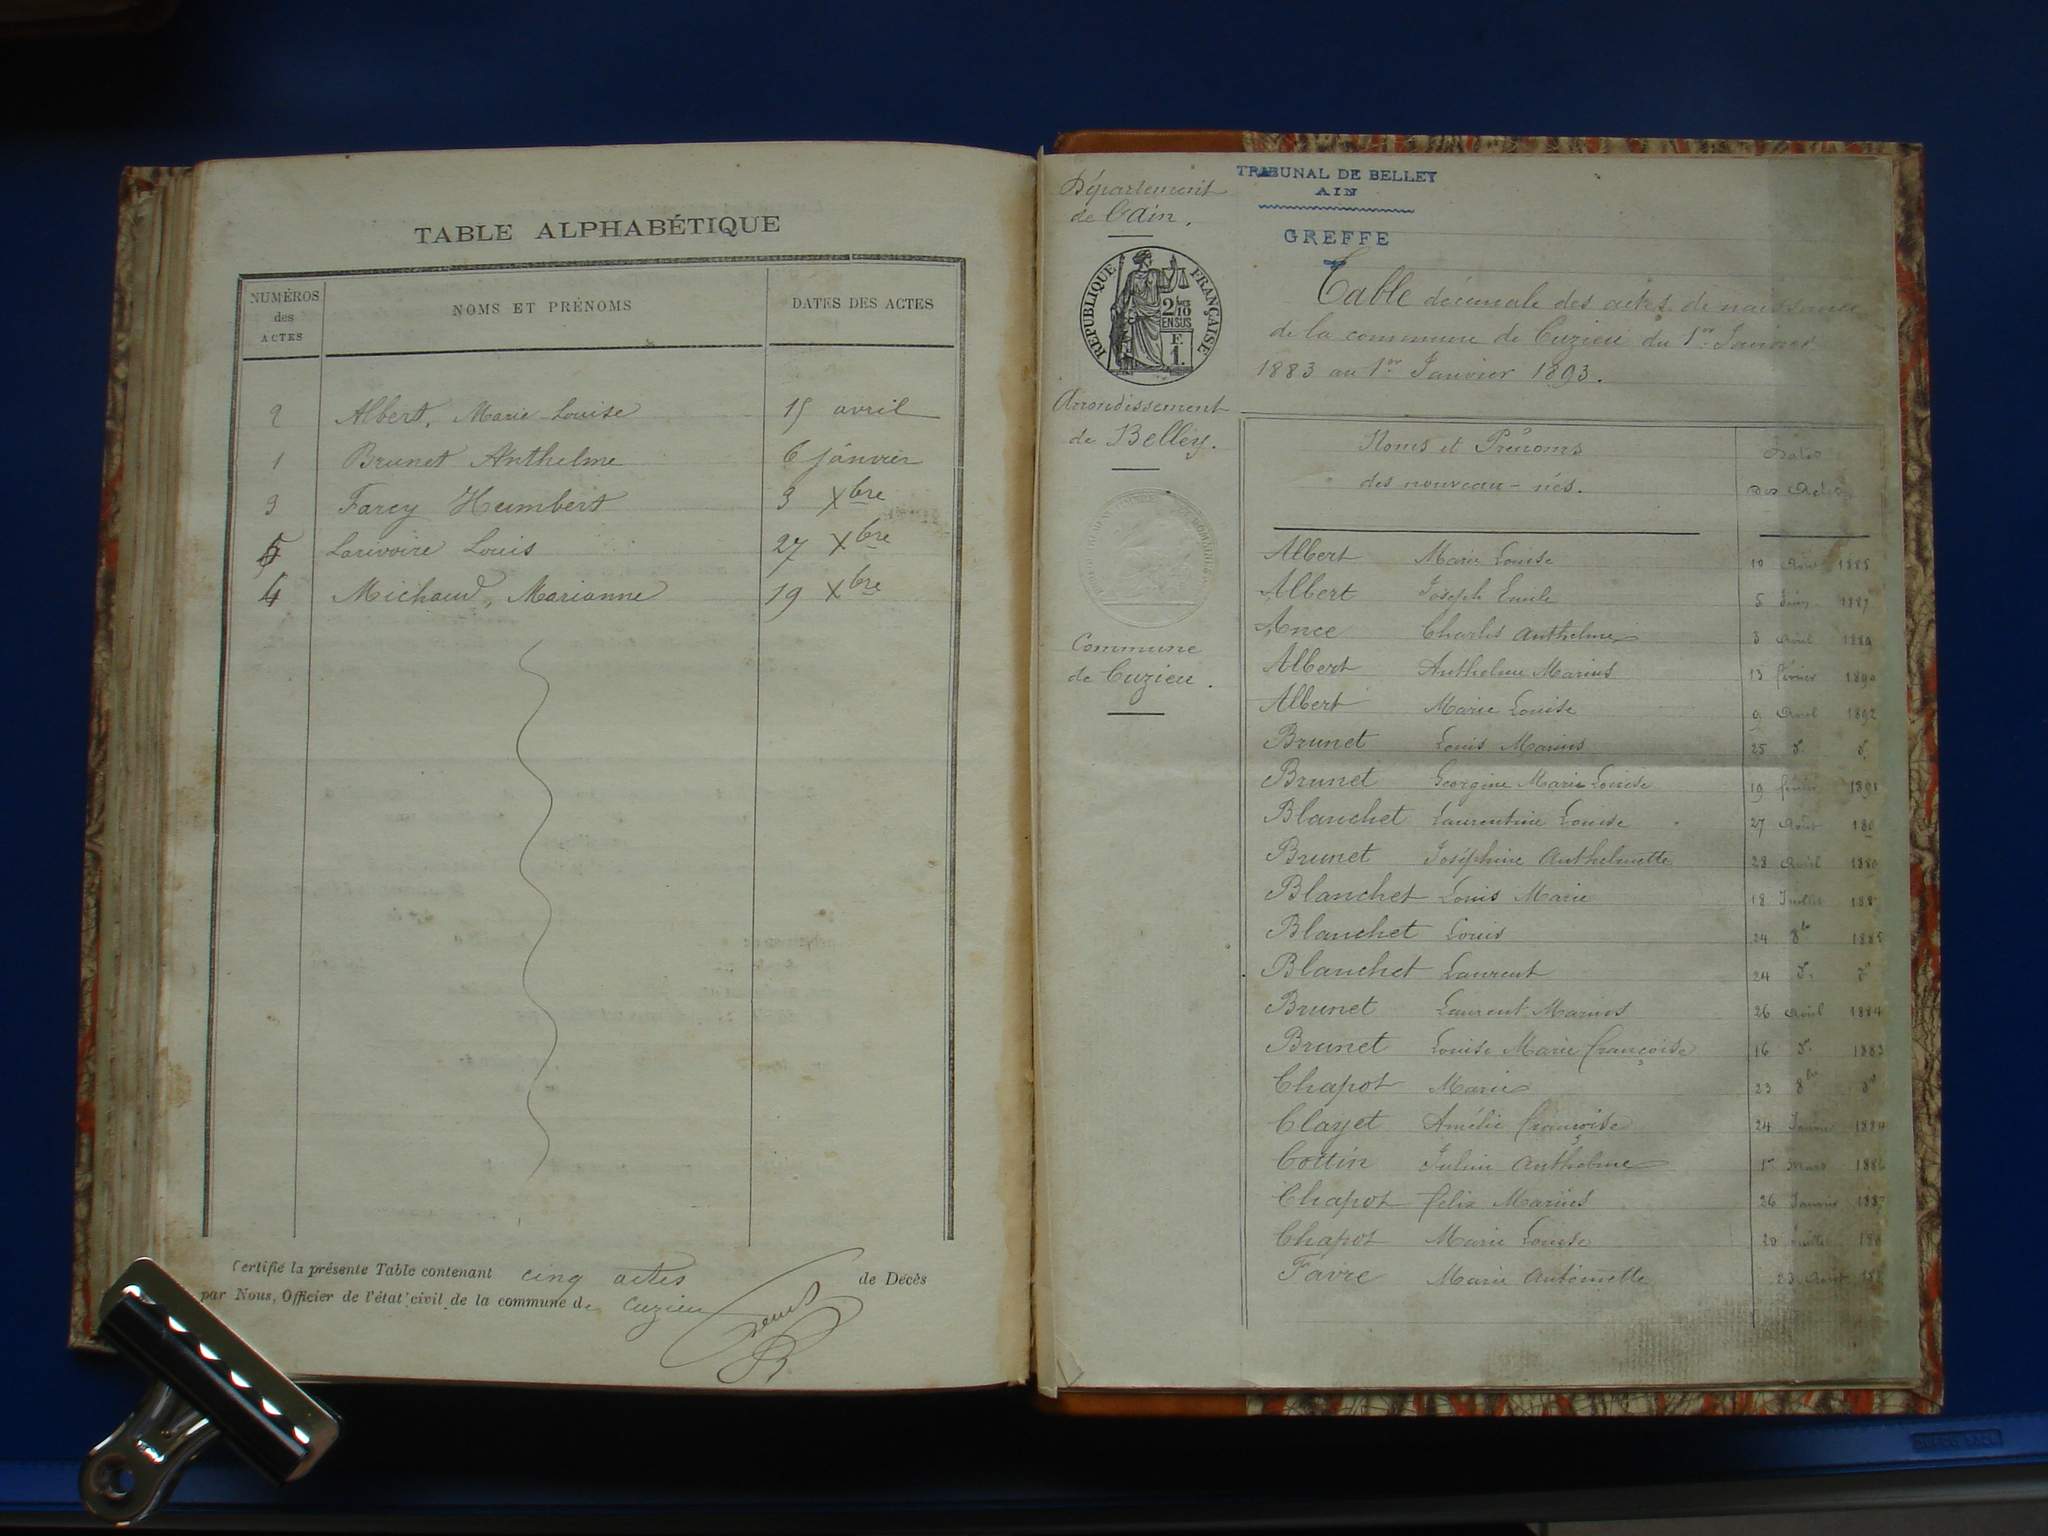 TABLE ALPHABÉTIQUE
NUMÉROS des ACTES NOMS ET PRÉNOMS DATES DES ACTES
2 Albert, Marie Louise 15 avril
1 Brunet Anthelme 6 janvier
3 Farcy Humbert 3 Xbre
5 Larivoire Louis 27 Xbre
4 Michaud, Marianne 19 Xbre
Certifié la présente Table contenant cinq actes de Décès
par Nous, Officier de l'état civil de la commune de Cuzieu
Département
de l'Ain.
RÉPUBLIQUE FRANÇAISE
2/10
EN SUS
F.
1.
Arrondissement
de Belley.
Commune
de Cuzieu.
TRIBUNAL DE BELLEY
AIN
GREFFE
Table décennale des actes de naissance
de la commune de Cuzieu du 1er Janvier
1883 au 1er Janvier 1893.
Noms et Prénoms Dates
des nouveau-nés. des Actes
Albert Marie Louise 10 1885
Albert Joseph Emile 5
Ance Charles Anthelme 3 Avril 1889
Albert Anthelme Marius 13 février 1890
Albert Marie Louise 9 Avril 1892
Brunet Louis Marius 25 d. d.
Brunet Georgine Marie Louise 19 février 1891
Blanchet Laurentine Louise 27 Août
Brunet Joséphine Anthelmette 28 Avril
Blanchet Louis Marie 18 Juillet
Blanchet Louis 24 8bre 1885
Blanchet Laurent 24 d. d.
Brunet Laurent Marius 26 Avril 1884
Brunet Louise Marie françoise 16 d. 1883
Chapot Marie 23 8bre d.
Clayet Amélie françoise 24 Janvier
Cottin Julien Anthelme 1er Mars 1886
Chapot félix Marius 26 Janvier 1887
Chapot Marie Louise 20 Juillet
Favre Marie Antoinette 23 Août